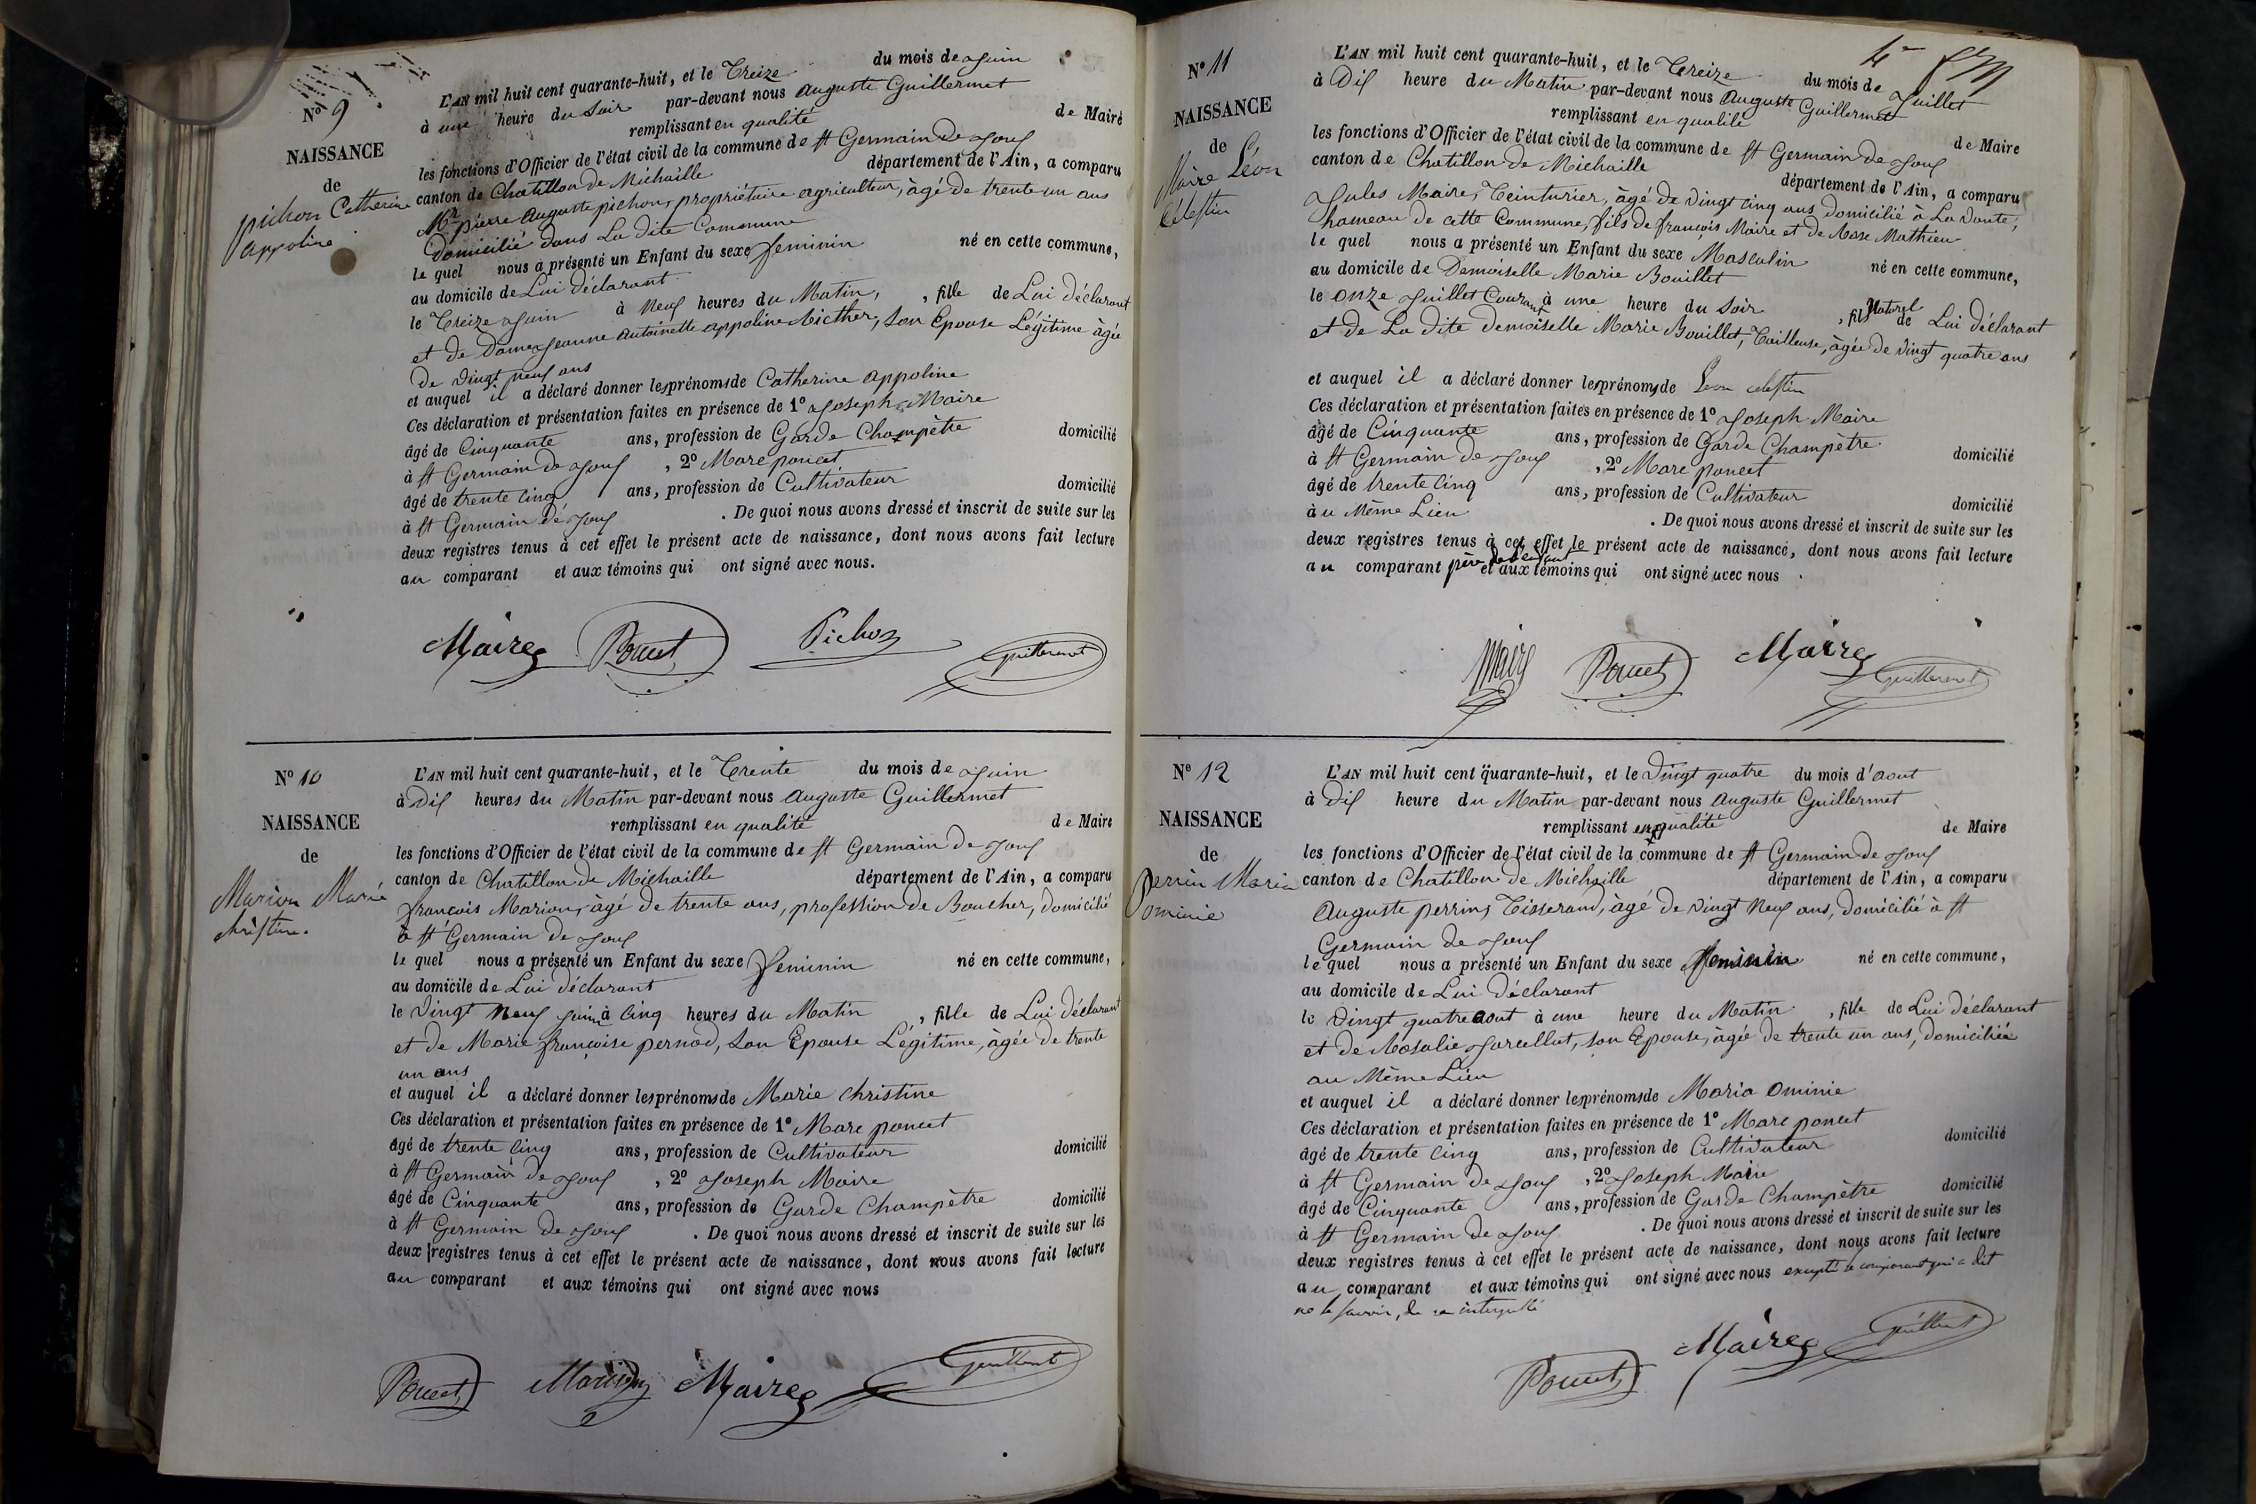 N° 9
NAISSANCE
de
pichon Catherine
appoline
L'AN mil huit cent quarante-huit, et le Treize du mois de Juin
à une heure du Soir par-devant nous Auguste Guillermet
remplissant en qualité de Maire
les fonctions d'Officier de l'état civil de la commune de St Germain De Joux
canton de Chatillon de Michaille département de l'Ain, a comparu
Mr pierre Auguste pichon, propriétaire agriculteur, àgé de trente un ans
Domicilié dans La dite Commune
le quel nous a présenté un Enfant du sexe feminin né en cette commune,
au domicile de Lui déclarant
le Treize Juin à Neuf heures du Matin, , fille de Lui déclarant
et de Dame Jeanne Antoinette appoline, Son Epouse Légitime àgée
De vingt neuf ans
et auquel il a déclaré donner les prénoms de Catherine appoline
Ces déclaration et présentation faites en présence de 1° Joseph Maire
âgé de Cinquante ans, profession de Garde Champètre domicilié
à St Germain de Joux , 2° Marc poncet
âgé de trente Cinq ans, profession de Cultivateur domicilié
à St Germain de Joux . De quoi nous avons dressé et inscrit de suite sur les
deux registres tenus à cet effet le présent acte de naissance, dont nous avons fait lecture
au comparant et aux témoins qui ont signé avec nous.
Maire Poncet Pichon Guillermet
N° 10
NAISSANCE
de
Marion Marie
christine.
L'AN mil huit cent quarante-huit, et le Trente du mois de Juin
à Dix heures du Matin par-devant nous Auguste Guillermet
remplissant en qualité de Maire
les fonctions d'Officier de l'état civil de la commune de St Germain de Joux
canton de Chatillon de Michaille département de l'Ain, a comparu
françois Marion, àgé de trente ans, profession de Boucher, domicilié
à St Germain de Joux
le quel nous a présenté un Enfant du sexe feminin né en cette commune,
au domicile de Lui déclarant
le Vingt Neuf Juin à Cinq heures du Matin , fille de Lui déclarant
et de Marie françoise pernod, Son Epouse Légitime, àgée de trente
un ans
et auquel il a déclaré donner les prénoms de Marie christine
Ces déclaration et présentation faites en présence de 1° Marc poncet
âgé de trente Cinq ans, profession de Cultivateur domicilié
à St Germain de Joux , 2° Joseph Maire
âgé de Cinquante ans, profession de Garde Champètre domicilié
à St Germain de Joux . De quoi nous avons dressé et inscrit de suite sur les
deux registres tenus à cet effet le présent acte de naissance, dont nous avons fait lecture
au comparant et aux témoins qui ont signé avec nous
Poncet Marion Maire Guillermet
N° 11
NAISSANCE
de
Maire Léon
Célestin
L'AN mil huit cent quarante-huit, et le Treize du mois de Juillet
à Dix heure du Matin par-devant nous Auguste Guillermet
remplissant en qualité de Maire
les fonctions d'Officier de l'état civil de la commune de St Germain de Joux
canton de Chatillon de Michaille département de l'Ain, a comparu
Jules Maire, Teinturier, àgé de Vingt Cinq ans domicilié à La Voute,
hameau de cette Commune, fils de françois Maire et de Rose Mathieu
le quel nous a présenté un Enfant du sexe Masculin né en cette commune,
au domicile de Demoiselle Marie Bouillet
le onze Juillet Courant à une heure du Soir , fils Naturel de Lui déclarant
et de La dite demoiselle Marie Bouillet, Tailleuse, àgée de vingt quatre ans
et auquel il a déclaré donner les prénoms de Léon célestin
Ces déclaration et présentation faites en présence de 1° Joseph Maire
âgé de Cinquante ans, profession de Garde Champètre domicilié
à St Germain de Joux , 2° Marc poncet
âgé de trente Cinq ans, profession de Cultivateur domicilié
à u Même Lieu . De quoi nous avons dressé et inscrit de suite sur les
deux registres tenus à cet effet le présent acte de naissance, dont nous avons fait lecture
au comparant père de l'enfant et aux témoins qui ont signé avec nous .
Maire Poncet Maire Guillermet
N° 12
NAISSANCE
de
Perrin Maria
Ominie
L'AN mil huit cent quarante-huit, et le Vingt quatre du mois d'aout
à Dix heure du Matin par-devant nous Auguste Guillermet
remplissant en qualité de Maire
les fonctions d'Officier de l'état civil de la commune de St Germain de Joux
canton de Chatillon de Michaille département de l'Ain, a comparu
Auguste perrin, Tisserand, àgé de vingt Neuf ans, domicilié à St
Germain de Joux
le quel nous a présenté un Enfant du sexe feminin né en cette commune,
au domicile de Lui déclarant
le Vingt quatre aout à une heure du Matin , fille de Lui déclarant
et de Rosalie Jarcellut, son Epouse, àgée de trente un ans, domiciliée
au Même Lieu
et auquel il a déclaré donner les prénoms de Maria Ominie
Ces déclaration et présentation faites en présence de 1° Marc poncet
âgé de trente Cinq ans, profession de Cultivateur domicilié
à St Germain de Joux , 2° Joseph Maire
âgé de Cinquante ans, profession de Garde Champètre domicilié
à St Germain de Joux . De quoi nous avons dressé et inscrit de suite sur les
deux registres tenus à cet effet le présent acte de naissance, dont nous avons fait lecture
au comparant et aux témoins qui ont signé avec nous excepté le comparant qui a dit
ne le savoir, de ce interpellé
Poncet Maire Guillermet